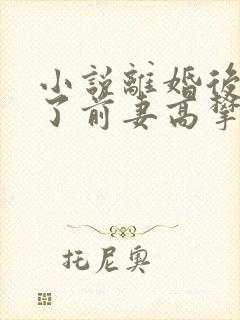 小说離婚後
了前妻高攀
托尼奥